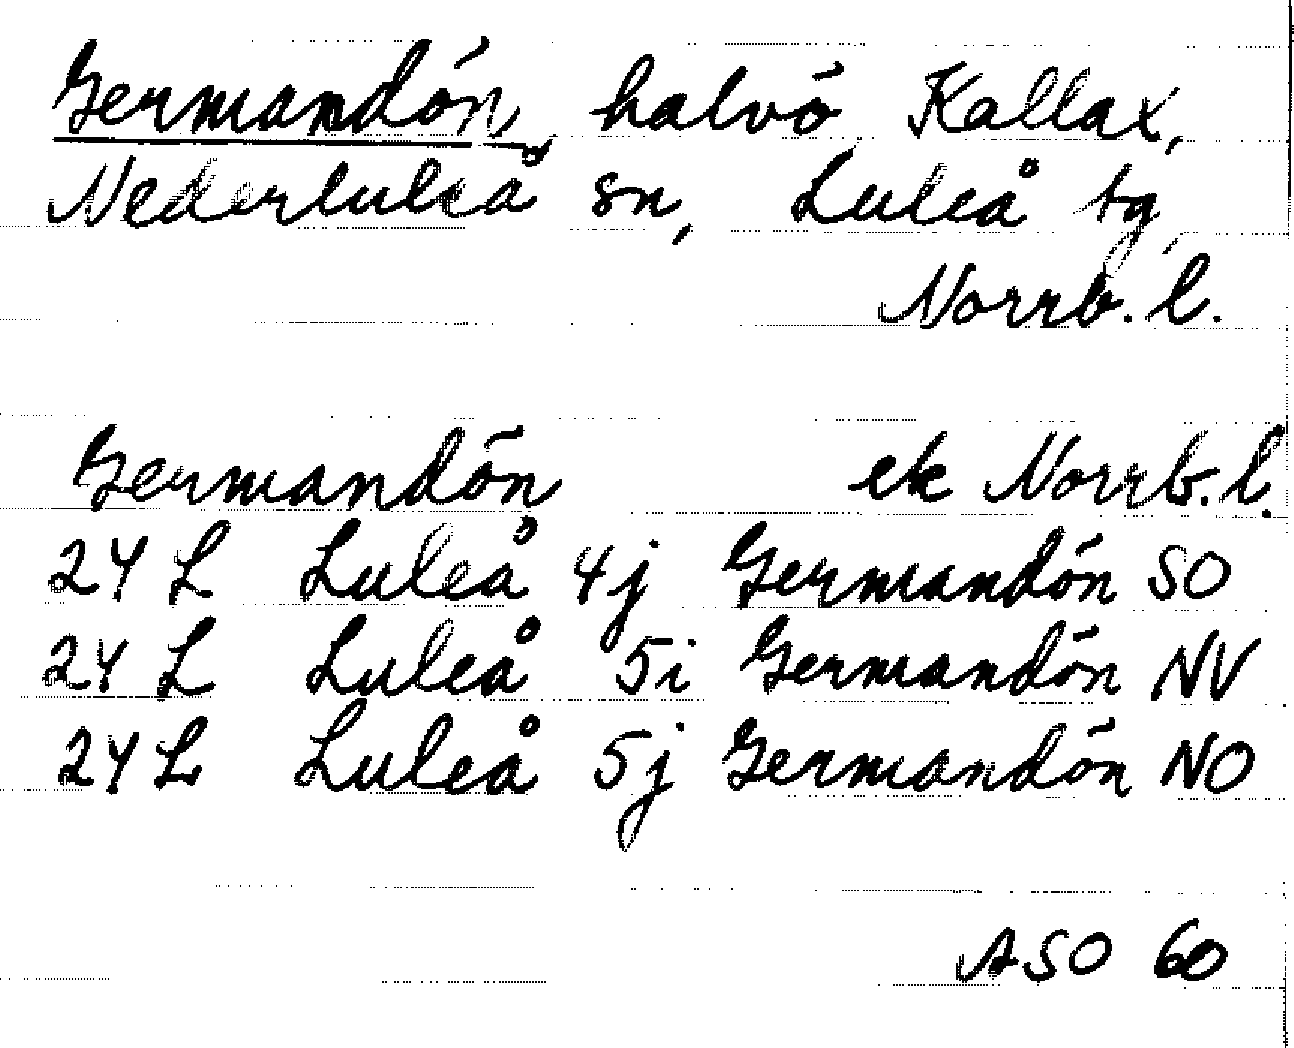 Germandön, halvö Kallax,
Nederluleå sn, Luleå tg,
Norrb. l.
Germandön ek Norrb. l.
24 L Luleå 4j Germandön SO
24 L Luleå 5i Germandön NV
24 L Luleå 5j Germandön NO
ASO 60